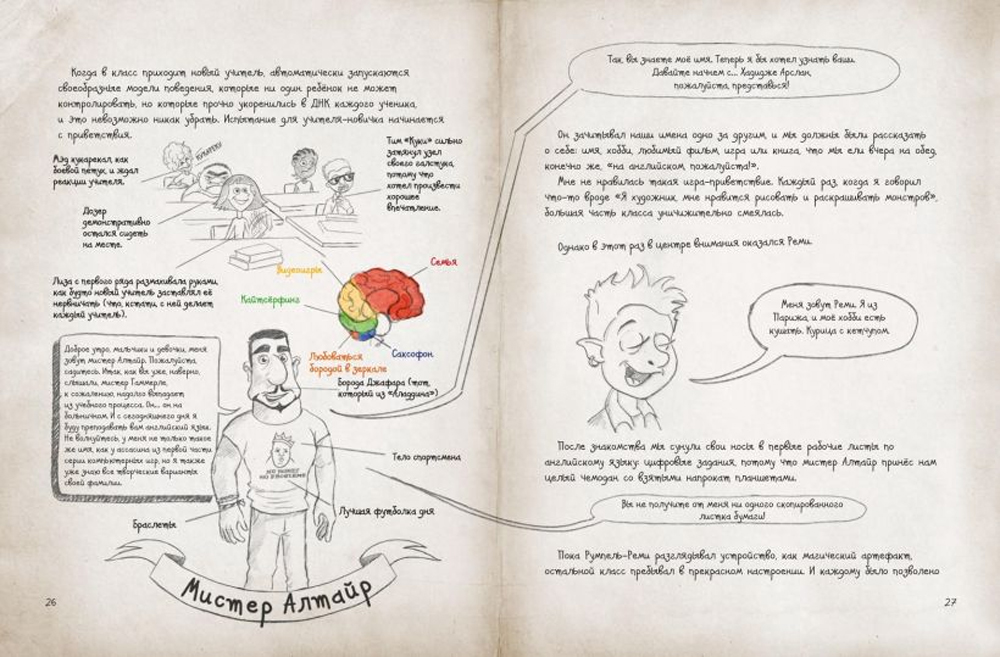 Когда в класс приходит новый учитель, автоматически запускаются
своеобразные модели поведения, которые ни один ребёнок не может
контролировать, но которые прочно укоренились в ДНК каждого ученика,
и это невозможно никак убрать. Испытание для учителя-новичка начинается
с приветствия.
Мэд кукарекал, как
боевой петух, и ждал
реакции учителя.
КУКАРЕКУ
Тим «Куки» сильно
затянул узел
своего галстука,
потому что
хотел произвести
хорошее
впечатление.
Дозер
демонстративно
остался сидеть
на месте.
Лиза с первого ряда размахивала руками,
как будто новый учитель заставлял её
нервничать (что, кстати, с ней делает
каждый учитель).
Видеоигры
Семья
Кайтсёрфинг
Любоваться
бородой в зеркале
Саксофон
Доброе утро, мальчики и девочки, меня
зовут мистер Алтайр. Пожалуйста,
садитесь. Итак, как вы уже, наверно,
слышали, мистер Таммерле,
к сожалению, надолго выпадает
из учебного процесса. Он... он на
больничном. И с сегодняшнего дня я
буду преподавать вам английский язык.
Не волнуйтесь, у меня не только такое
же имя, как у ассасина из первой части
серии компьютерных игр, но я также
уже знаю все творческие варианты
своей фамилии.
Борода Джафара (тот,
который из «Аладдина»)
NO FAMILY
NO PROBLEMS
Тело спортсмена
Лучшая футболка дня
Браслеты
Мистер Алтайр
26
Так, вы знаете моё имя. Теперь я бы хотел узнать ваши.
Давайте начнем с... Хадидже Арслан,
пожалуйста, представься!
Он зачитывал наши имена одно за другим, и мы должны были рассказать
о себе: имя, хобби, любимый фильм, игра или книга, что мы ели вчера на обед,
конечно же, «на английском пожалуйста!».
Мне не нравилась такая игра-приветствие. Каждый раз, когда я говорил
что-то вроде «Я художник, мне нравится рисовать и раскрашивать монстров»,
большая часть класса уничижительно смеялась.
Однако в этот раз в центре внимания оказался Реми.
Меня зовут Реми. Я из
Парижа, и моё хобби есть
кушать. Курица с кетчупом.
После знакомства мы сунули свои носы в первые рабочие листы по
английскому языку: цифровые задания, потому что мистер Алтайр принёс нам
целый чемодан со взятыми напрокат планшетами.
Вы не получите от меня ни одного скопированного
листка бумаги!
Пока Румпель-Реми разглядывал устройство, как магический артефакт,
остальной класс пребывал в прекрасном настроении. И каждому было позволено
27